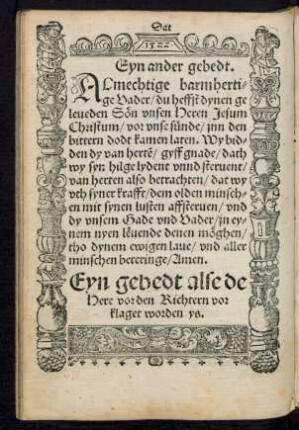 Dat
1522
Eyn ander gebedt.
ALmechtige barmherti-
ge Vader/ du heffst dynen ge
leueden Sön vnsen Heren Jesum
Christum/ vor vnse sünde/ jnn den
bittern dodt kamen laten. Wy bid-
den dy van hertē/ gyff gnade/ dath
wy syn hilge lydent vnnd steruent/
van herten also betrachten/ dat wy
vth syner krafft/ dem olden minsch-
en mit synen lusten affsteruen/ vnd
dy vnsem Gade vnd Vader/ jn ey-
nem nyen leuende denen möghen/
tho dynem ewigen laue/ vnd aller
minschen beteringe/ Amen.
Eyn gebedt alse de
Here vor den Richtern vor
klaget worden ys.